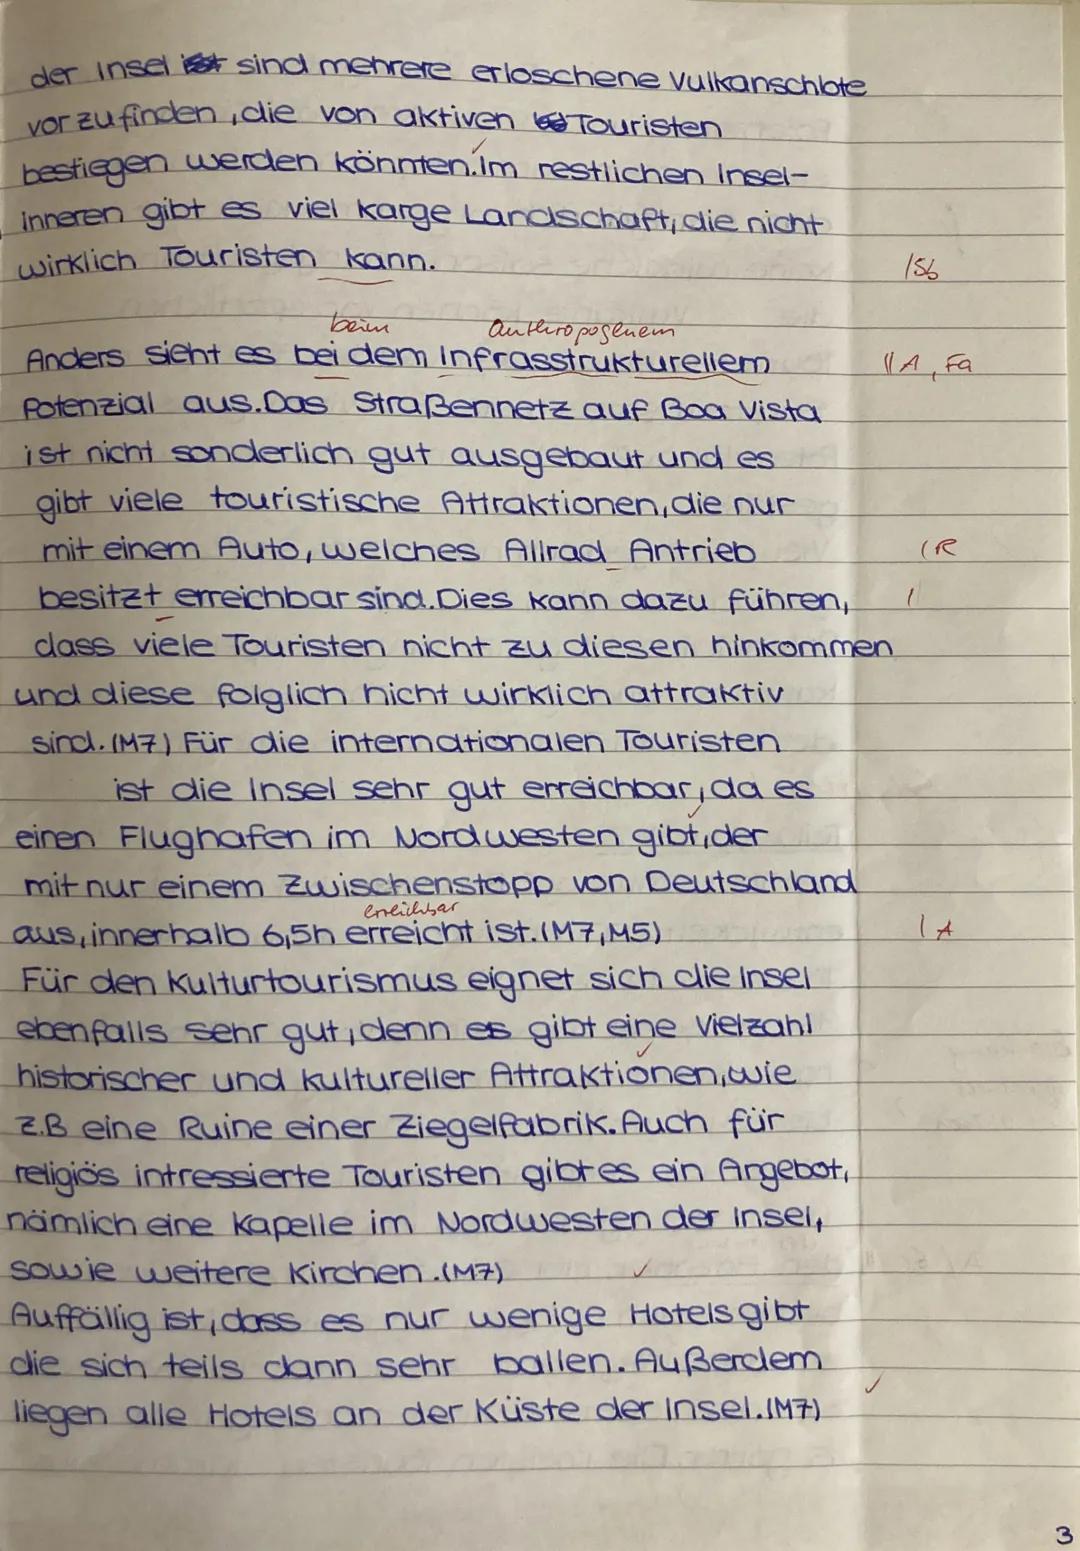 der Insel ist sind mehrere erloschene Vulkanschlote
vorzufinden, die von aktiven Touristen
bestiegen werden könnten. Im restlichen Insel-
inneren gibt es viel karge Landschaft, die nicht
wirklich Touristen kann.
1Sb
beim anthropogenem
Anders sieht es bei dem Infrasstrukturellem
11A, Fa
Potenzial aus. Das Straßennetz auf Boa Vista
ist nicht sonderlich gut ausgebaut und es
gibt viele touristische Attraktionen, die nur
mit einem Auto, welches Allrad Antrieb
1R
besitzt erreichbar sind. Dies kann dazu führen,
1
dass viele Touristen nicht zu diesen hinkommen
und diese folglich nicht wirklich attraktiv
sind. (M7) Für die internationalen Touristen
ist die Insel sehr gut erreichbar, da es
einen Flughafen im Nordwesten gibt, der
mit nur einem Zwischenstopp von Deutschland
erreichbar
aus, innerhalb 6,5h erreicht ist. (M7, M5)
1A
Für den Kulturtourismus eignet sich die Insel
ebenfalls sehr gut, denn es gibt eine Vielzahl
historischer und kultureller Attraktionen, wie
z.B eine Ruine einer Ziegelfabrik. Auch für
religiös intressierte Touristen gibt es ein Angebot,
nämlich eine Kapelle im Nordwesten der Insel,
sowie weitere Kirchen. (M7)
Auffällig ist, dass es nur wenige Hotels gibt
die sich teils dann sehr ballen. Außerdem
liegen alle Hotels an der Küste der Insel. (M7)
3